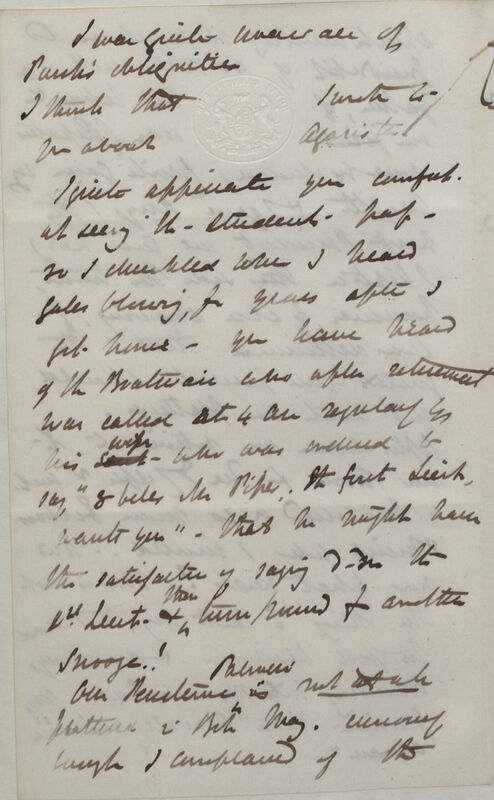 I was quite unaware of
Punch's obliquities
I think that I wrote to
you about Agarista
I quite appreciate your comfort
at seeing the students pass –
so I chuckled when I heard
gales blowing, for years after I
got home – you have heard
of the Boatswain who after retirement
was called at 4 AM regularly by
his wife – who was ordered to
say, "8 bells Mr Piper, the first Lieut,
wants you" – that he might have
the satisfaction of saying D–n the
1st Lieut – & then turn round for another
snooze!!
Our Balmisii is not at all
in Bot Mag. curiously
enough I complained of the